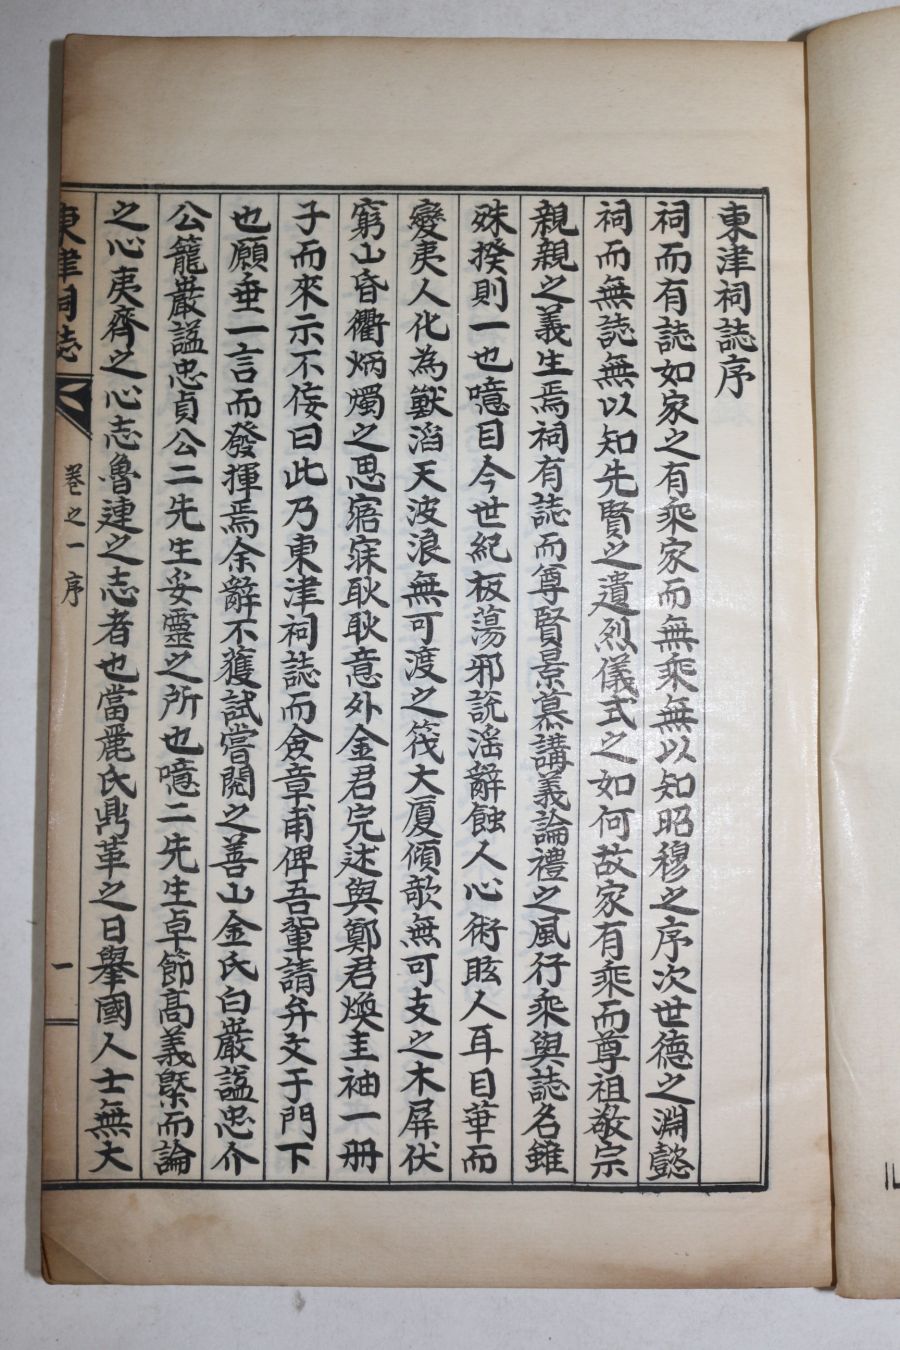 東津祠誌序
祠而有誌如家之有乘家而無乘無以知昭穆之序次世德之淵懿
祠而無誌無以知先賢之遺烈儀式之如何故家有乘而尊祖敬宗
親親之義生焉祠有誌而尊賢景慕講義論禮之風行乘與誌名雖
殊揆則一也噫目今世紀板蕩邪說滛辭蝕人心術眩人耳目華而
變夷人化為獸滔天波浪無可渡之筏大厦傾欹無可支之木屏伏
窮山昏衢炳燭之思寤寐耿耿意外金君完述與鄭君煥圭袖一册
子而來示不侫曰此乃東津祠誌而僉章甫俾吾輩請弁文于門下
也願垂一言而發揮焉余辭不獲試嘗閱之善山金氏白巖謚忠介
公籠巖謚忠貞公二先生妥靈之所也噫二先生卓節高義槩而論
之心夷齊之心志魯連之志者也當麗氏鼎革之日擧國人士無大
東津祠誌
卷之一 序
一